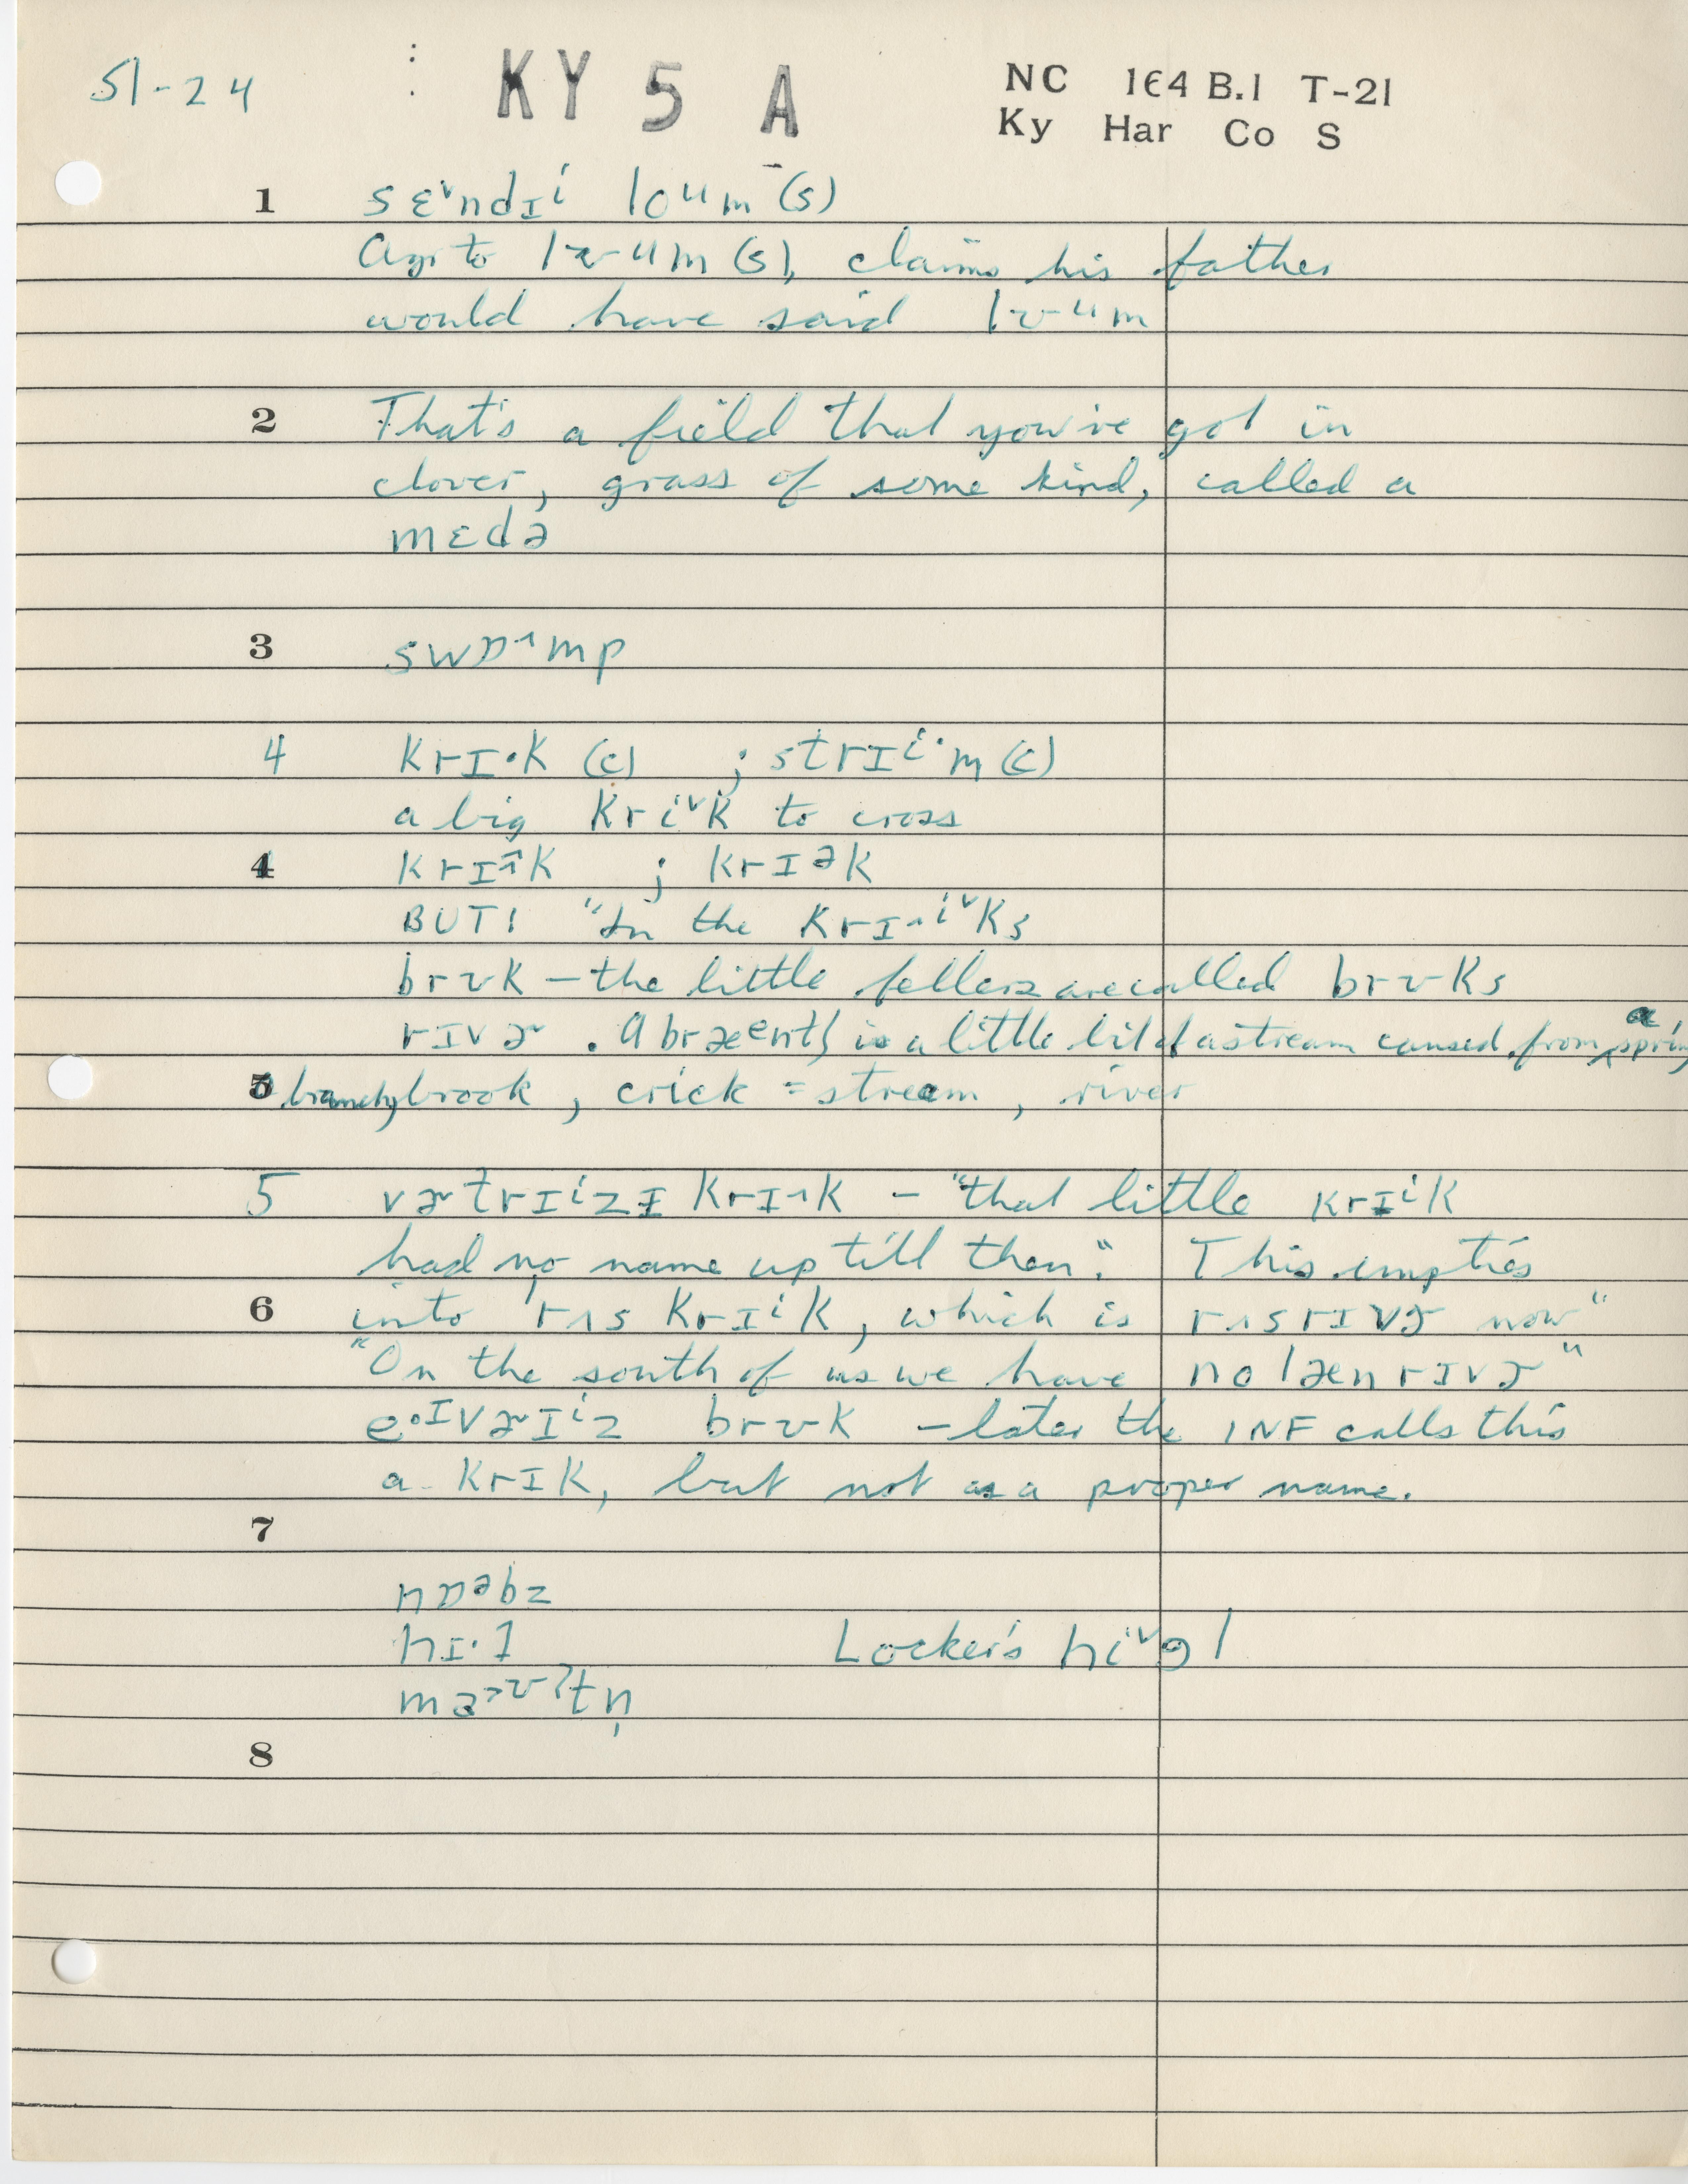 51-24 KY 5 A NC 164 B.1 T-21
Ky Har Co S
1 sɛ˅ndɪⁱ loᵘm (s)
Agr to lʊᵘm (s), claims his father
would have said lʊᵘm
2 That's a field that you've got in
clover, grass of some kind, called a
mɛdə
3 swɒ˄mp
4 krɪ·k (c) ; strɪⁱ·m (c)
a big kri˅k to cross
4 krɪɪ̂k ; krɪᵊk
BUT! "In the krɪ˄ⁱ˅ks
brʊk – the little fellers are called brʊks
rɪvɚ . A bræᵉntʃ is a little bit of a stream caused from a spring
5 branch, brook, crick = stream, river
5 vɚtrɪⁱzɪ krɪ˄k – "that little krɪⁱk
had no name up till then". This empties
6 into rʌs krɪⁱk, which is rʌs rɪvɚ now"
"On the south of us we have nolæn rɪvɚ"
e·ɪvɚɪⁱz brʊk – later the INF calls this
a krɪk, but not as a proper name.
7
nɒᵊbz
hɪ·l Locker's hi˅əl
maʊʔtn̩
8